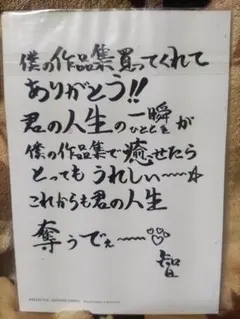 僕の作品集買ってくれて
ありがとう!!
君の人生の一瞬が
ひととき
僕の作品集で癒せたら
とってもうれしい〜〜☆
これからも君の人生
奪うでぇ〜〜
智